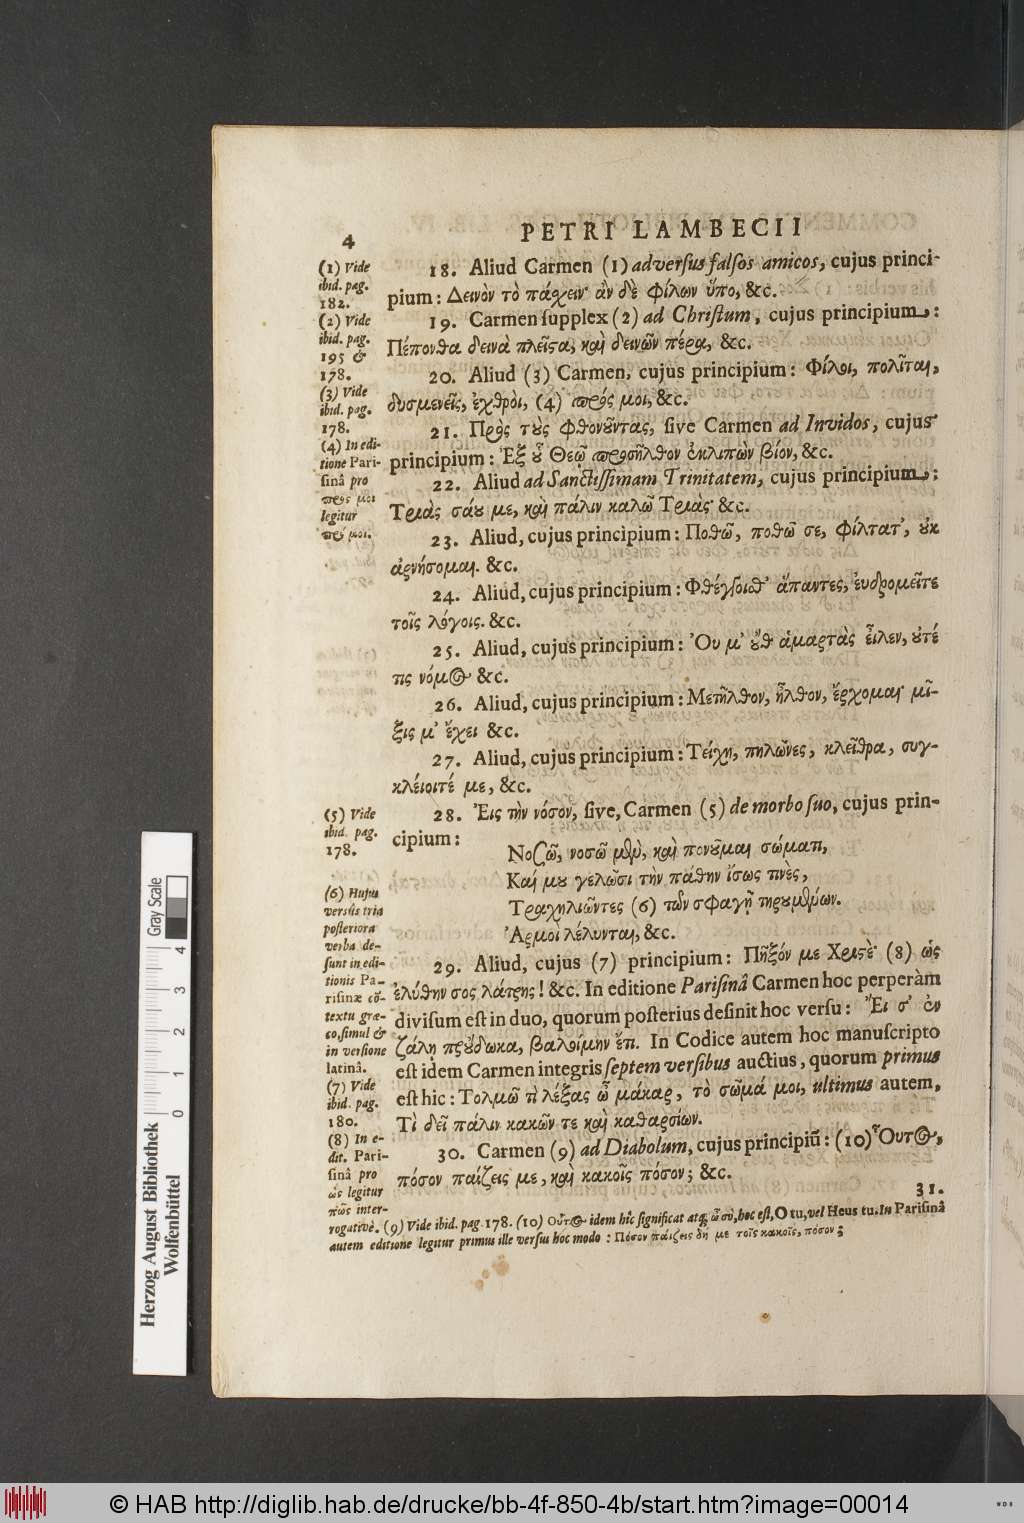 4
PETRI LAMBECII
18. Aliud Carmen (1) adversus falsos amicos, cujus princi-
pium: Δεινὸν τὸ πάχειν· ἂν δὲ φίλων ὕπο, &c.
19. Carmen supplex (2) ad Christum, cujus principium:
Πέπονθα δεινὰ πλεῖςα, καὶ δεινῶν πέρα, &c.
20. Aliud (3) Carmen, cujus principium: Φίλοι, πολῖται,
δυσμενεῖς, ἐχθροὶ, (4) πρός μοι, &c.
21. Πρὸς τοὺς φθονοῦντας, sive Carmen ad Invidos, cujus
principium: Ἐξ οὗ Θεῷ προσῆλθον ἐκλιπὼν βίον, &c.
22. Aliud ad Sanctissimam Trinitatem, cujus principium:
Τριὰς σάου με, καὶ πάλιν καλῶ Τριὰς· &c.
23. Aliud, cujus principium: Ποθῶ, ποθῶ σε, φίλτατ', οὐκ
ἀρνήσομαι. &c.
24. Aliud, cujus principium: Φθέγξοισθ' ἅπαντες, εὐδρομεῖτε
τοῖς λόγοις. &c.
25. Aliud, cujus principium: Ὀυ μ' οὔθ ἁμαρτὰς εἷλεν, οὐτέ
τις νόμος &c.
26. Aliud, cujus principium: Μετῆλθον, ἦλθον, ἔρχομαι· μῖ-
ξις μ' ἔχει &c.
27. Aliud, cujus principium: Τείχη, πυλῶνες, κλεῖθρα, συγ-
κλείοιτέ με, &c.
28. Ἐις τὴν νόσον, sive, Carmen (5) de morbo suo, cujus prin-
cipium:
Νοσῶ, νοσῶ μὲν, καὶ πονοῦμαι σώματι,
Καί μου γελῶσι τὴν πάθην ἴσως τινὲς,
Τραχηλιῶντες (6) τῶν σφαγῇ τηρουμένων.
Ἁρμοὶ λέλυνται, &c.
29. Aliud, cujus (7) principium: Πῆξόν με Χριςὲ· (8) ὡς
ἐλύθην σος λάτρης! &c. In editione Parisinâ Carmen hoc perperàm
divisum est in duo, quorum posterius desinit hoc versu: Ἔι σ' ἐν
ζάλῃ προὔδωκα, βαλοίμην ἔτι. In Codice autem hoc manuscripto
est idem Carmen integris septem versibus auctius, quorum primus
est hic: Τολμῶ τὶ λέξας ὦ μάκαρ, τὸ σῶμά μοι, ultimus autem,
Τὶ δεῖ πάλιν κακῶν τε καὶ καθαρσίων.
30. Carmen (9) ad Diabolum, cujus principiũ: (10) Οὗτος,
πόσον παίζεις με, καὶ κακοῖς πόσον; &c.
31.
(1) Vide
ibid. pag.
182.
(2) Vide
ibid. pag.
195 &
178.
(3) Vide
ibid. pag.
178.
(4) In edi-
tione Pari-
sinâ pro
πρός μοι
legitur
πρό μοι.
(5) Vide
ibid. pag.
178.
(6) Hujus
versûs tria
posteriora
verba de-
sunt in edi-
tionis Pa-
risinæ cõ-
textu græ-
co, simul &
in versione
latinâ.
(7) Vide
ibid. pag.
180.
(8) In e-
dit. Pari-
sinâ pro
ὡς legitur
πῶς inter-
rogativè. (9) Vide ibid. pag. 178. (10) Οὗτος idem hîc significat atq; ὦ σὺ, hoc est, O tu, vel Heus tu. In Parisinâ
autem editione legitur primus ille versus hoc modo: Πόσον παίζεις δή με τοῖς κακοῖς, πόσον;
Herzog August Bibliothek
Wolfenbüttel
Gray Scale
0 1 2 3 4
© HAB http://diglib.hab.de/drucke/bb-4f-850-4b/start.htm?image=00014